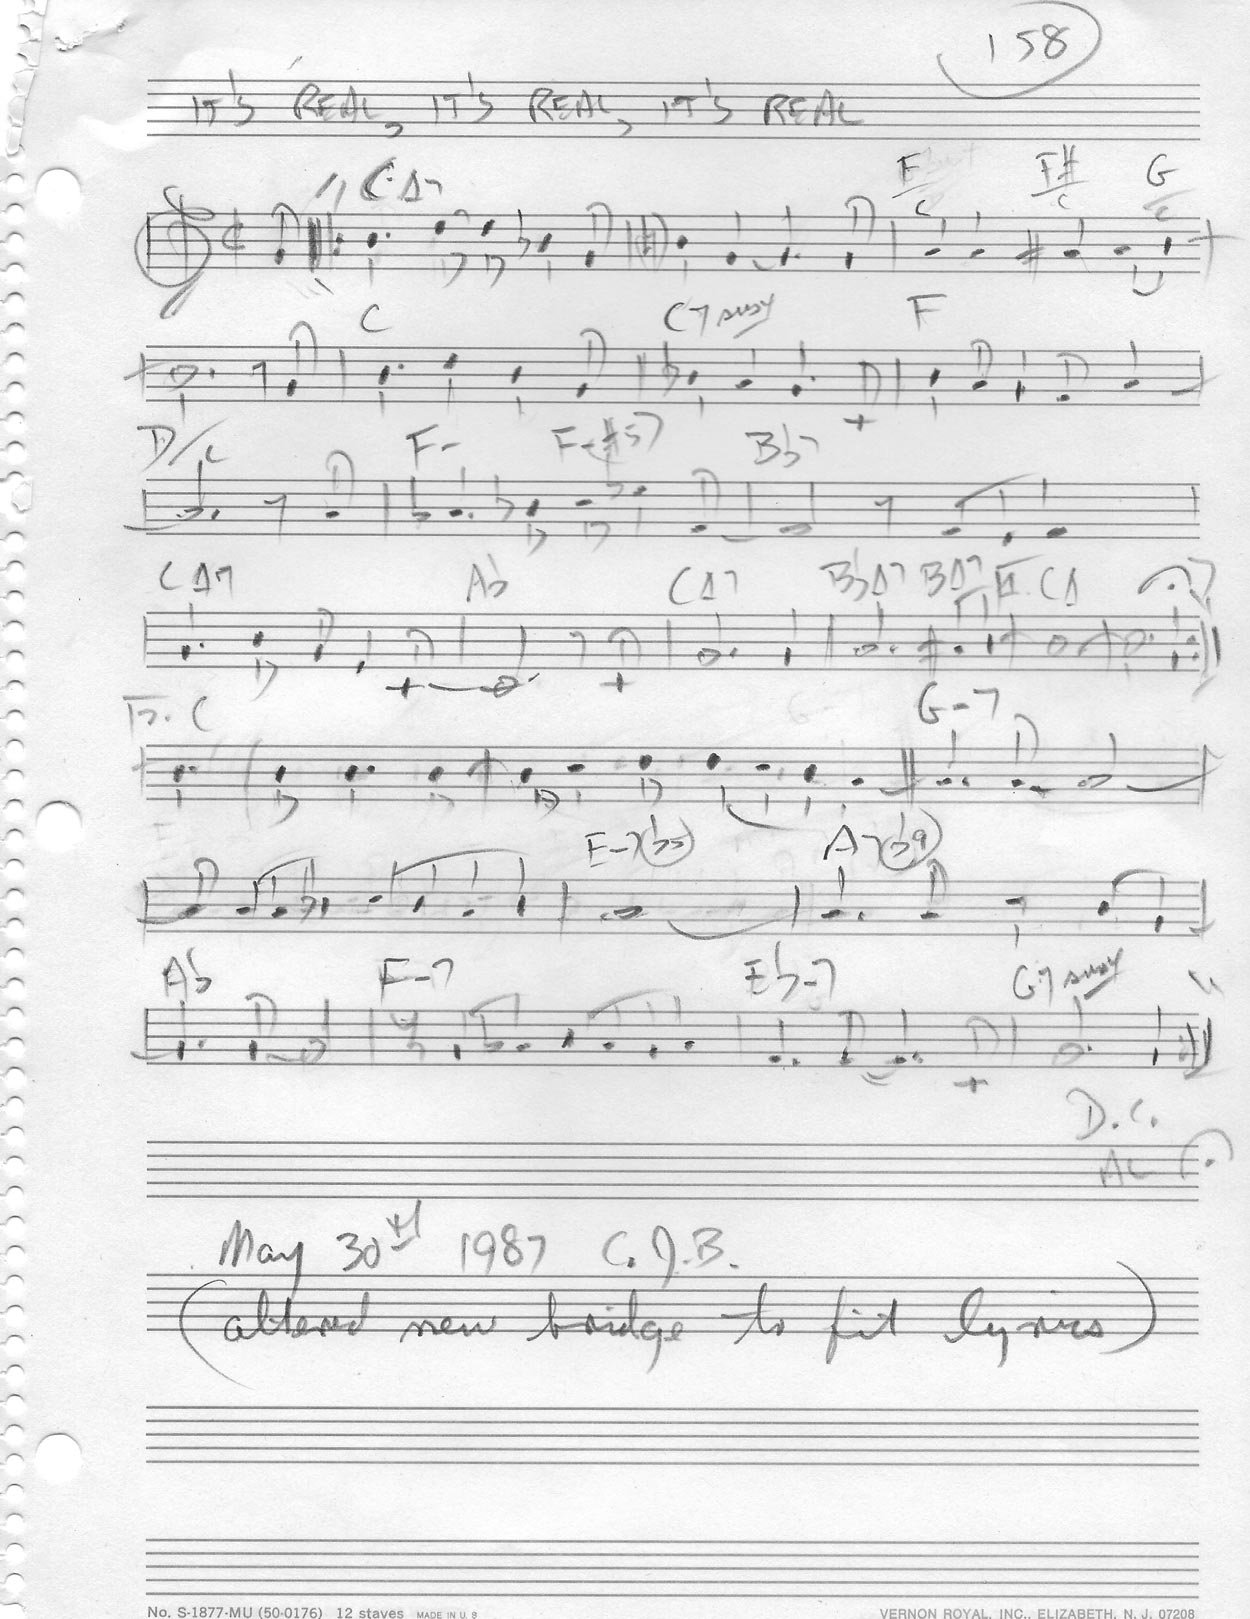 158
IT'S REAL, IT'S REAL, IT'S REAL
C Δ7 F/C F#/C G/C
C C7 sus4 F
D/C F- F-#5 7 Bb7
C Δ7 Ab C Δ7 Bb Δ7 B Δ7 C Δ
C G-7
E-7(b5) A7(b9)
Ab F-7 Eb-7 G7 sus4
D.C.
AL
May 30th 1987 C.J.B.
(altered new bridge to fit lyrics)
No. S-1877-MU (50-0176) 12 staves MADE IN U. S VERNON ROYAL, INC., ELIZABETH, N. J. 07208